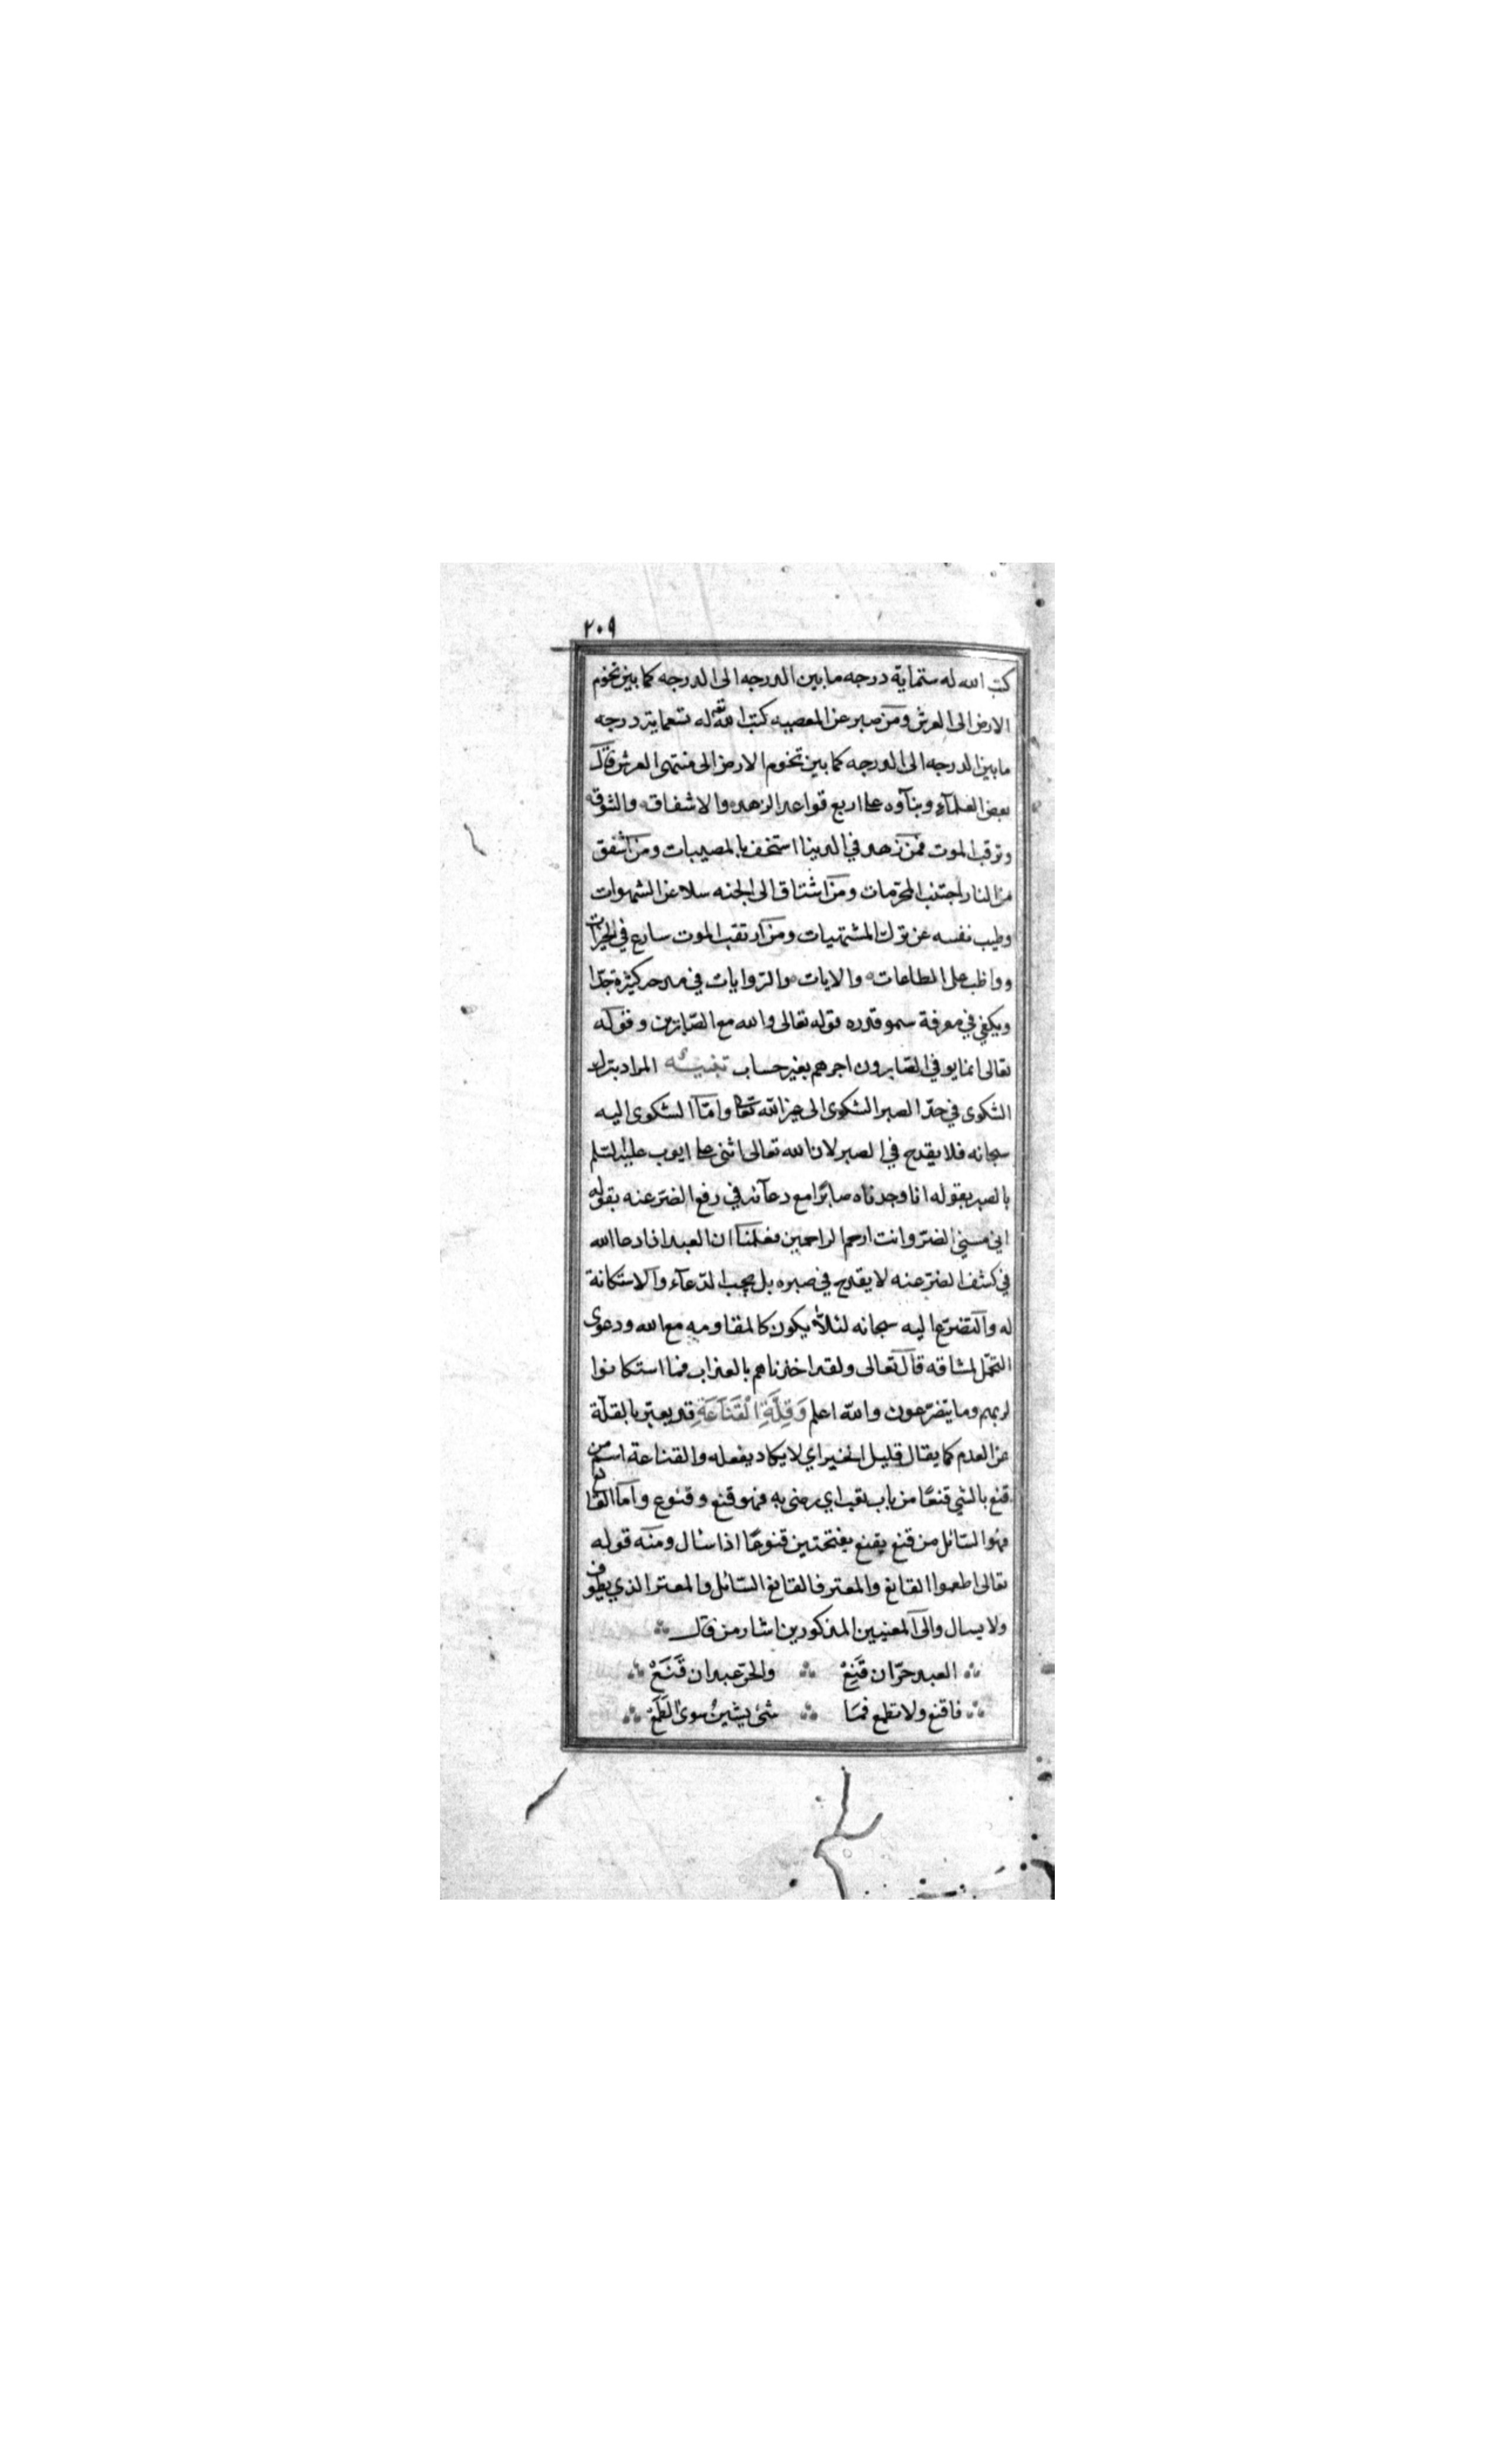 ٢٠٩
كتب الله له ستماية درجه مابين الدرجه الى الدرجه كما بين تخوم
الارض الى العرش ومن صبر عن المعصيه كتب الله تع له تسعماية درجه
مابين الدرجه الى الدرجه كما بين تخوم الارض الى منتهى العرش قال
بعض العلمآء وبنآوه على اربع قواعد الزهد والاشفاق والشوق
وترقب الموت فمن زهد في الدينا استخف بالمصيبات ومن اشفق
من النار اجتنب المحرّمات ومن اشتاق الى الجنه سلا عن الشهوات
وطيب نفسه عن ترك المشتهيات ومن ارتقب الموت سارع في الخيرات
وواظب على الطاعات والايات والروايات في مدحه كثيرة جدّا
ويكفي في معرفة سمو قدره قوله تعالى والله مع الصّابرين وقوله
تعالى انما يوفي الصّابرون اجرهم بغير حساب تنبيه المراد بترك
الشكوى في حدّ الصبر الشكوى الى غير الله تعا وامّا الشكوى اليه
سبحانه فلا يقدح في الصبر لان الله تعالى اثنى على ايوب عليه السّلم
بالصبر بقوله انا وجدناه صابرًا مع دعآئه في رفع الضرّ عنه بقوله
اني مسني الضرّ وانت ارحم الراحمين فعلمنا ان العبد اذا دعا الله
في كشف الضرّ عنه لا يقدح في صبره بل يجب الدّعآء والاستكانة
له والتضرّع اليه سبحانه لئلّا يكون كالمقاومه مع الله ودعوى
التحمّل لمشاقه قال تعالى ولقد اخذناهم بالعذاب فما استكانوا
لربهم وما يتضرّعون والله اعلم وَقِلَّةِ الْقَنَاعَةِ قد يعبّر بالقلّة
عن العدم كما يقال قليل الخير اي لا يكاد يفعله والقناعة اسم من
قنع بالشي قنعًا من باب تعب اي رضى به فهو قنع وقنوع وامّا القانع
فهو السّائل من قنع يقنع بفتحتين قنوعًا اذا سال ومنه قوله
تعالى اطعموا القانع والمعتر فالقانع السّائل والمعتر الذي يطوف
ولا يسال والى المعنيين المذكورين اشار من قال
العبد حرّ ان قَنِعْ والحرّ عبد ان قَنَعْ
فاقنع ولا تطمع فما شئ يشينُ سوى الطَّمَعْ